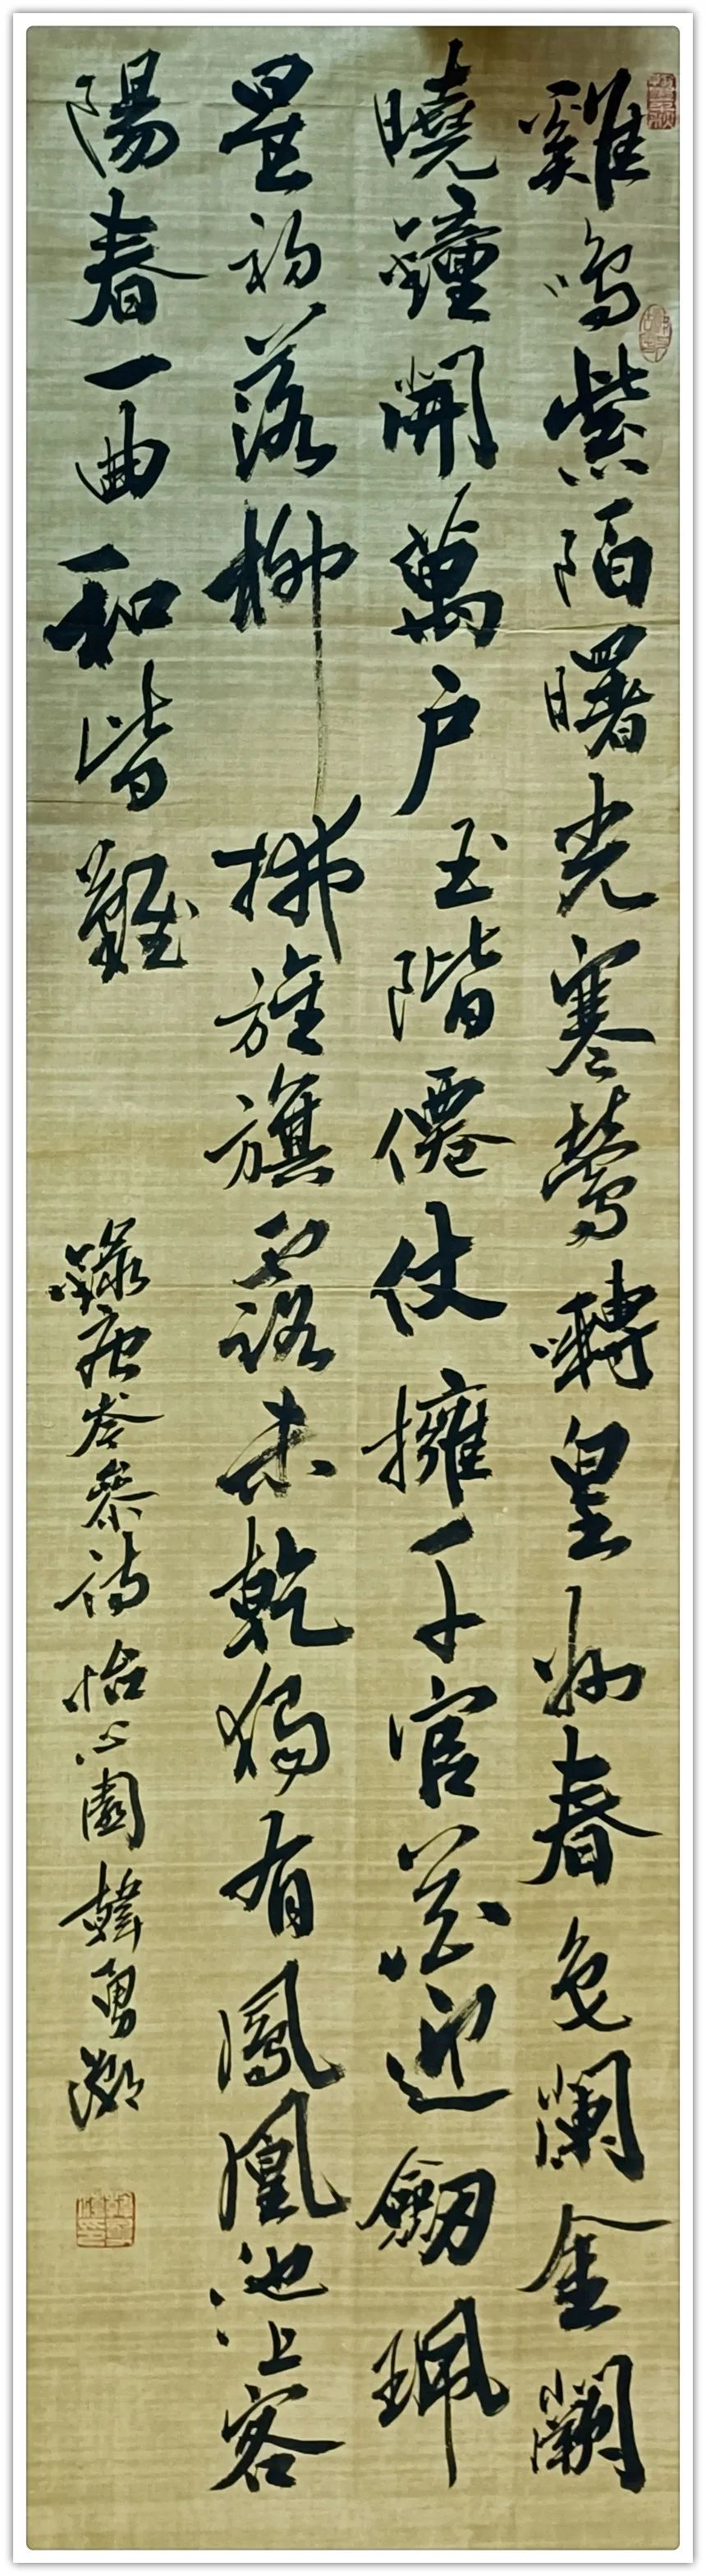 雞鳴紫陌曙光寒鶯囀皇州春色闌金闕
曉鐘開萬戶玉階僊仗擁千官花迎劔珮
星初落柳拂旌旗露未乾獨有鳳凰池上客
陽春一曲和皆難
錄唐岑參詩怡心園韓勇